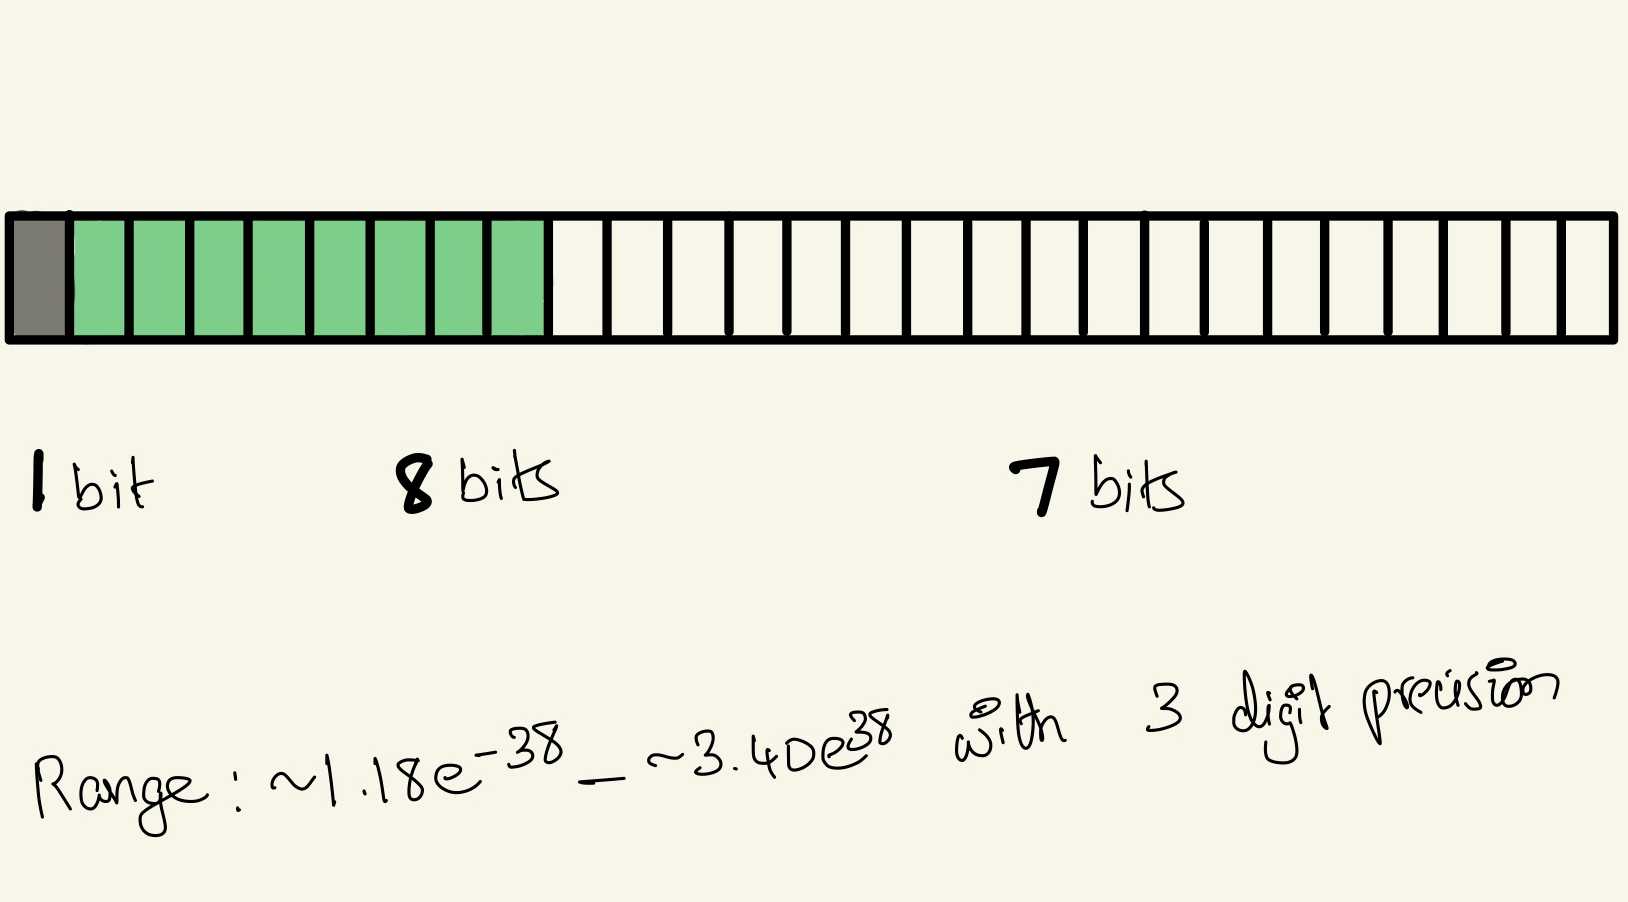 1 bit 8 bits 7 bits
Range: ~1.18e⁻³⁸ – ~3.40e³⁸ with 3 digit precision